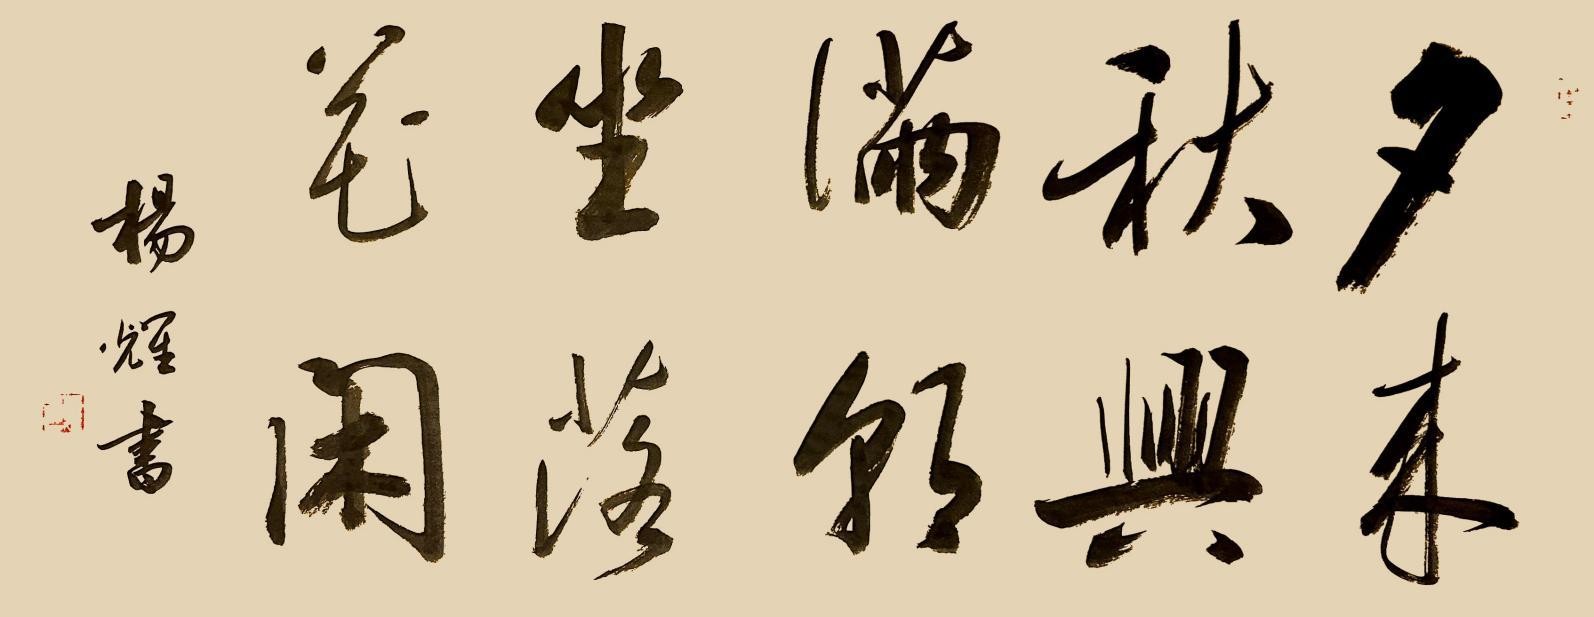 夕来
秋興
滿
坐落
花閑
楊耀書